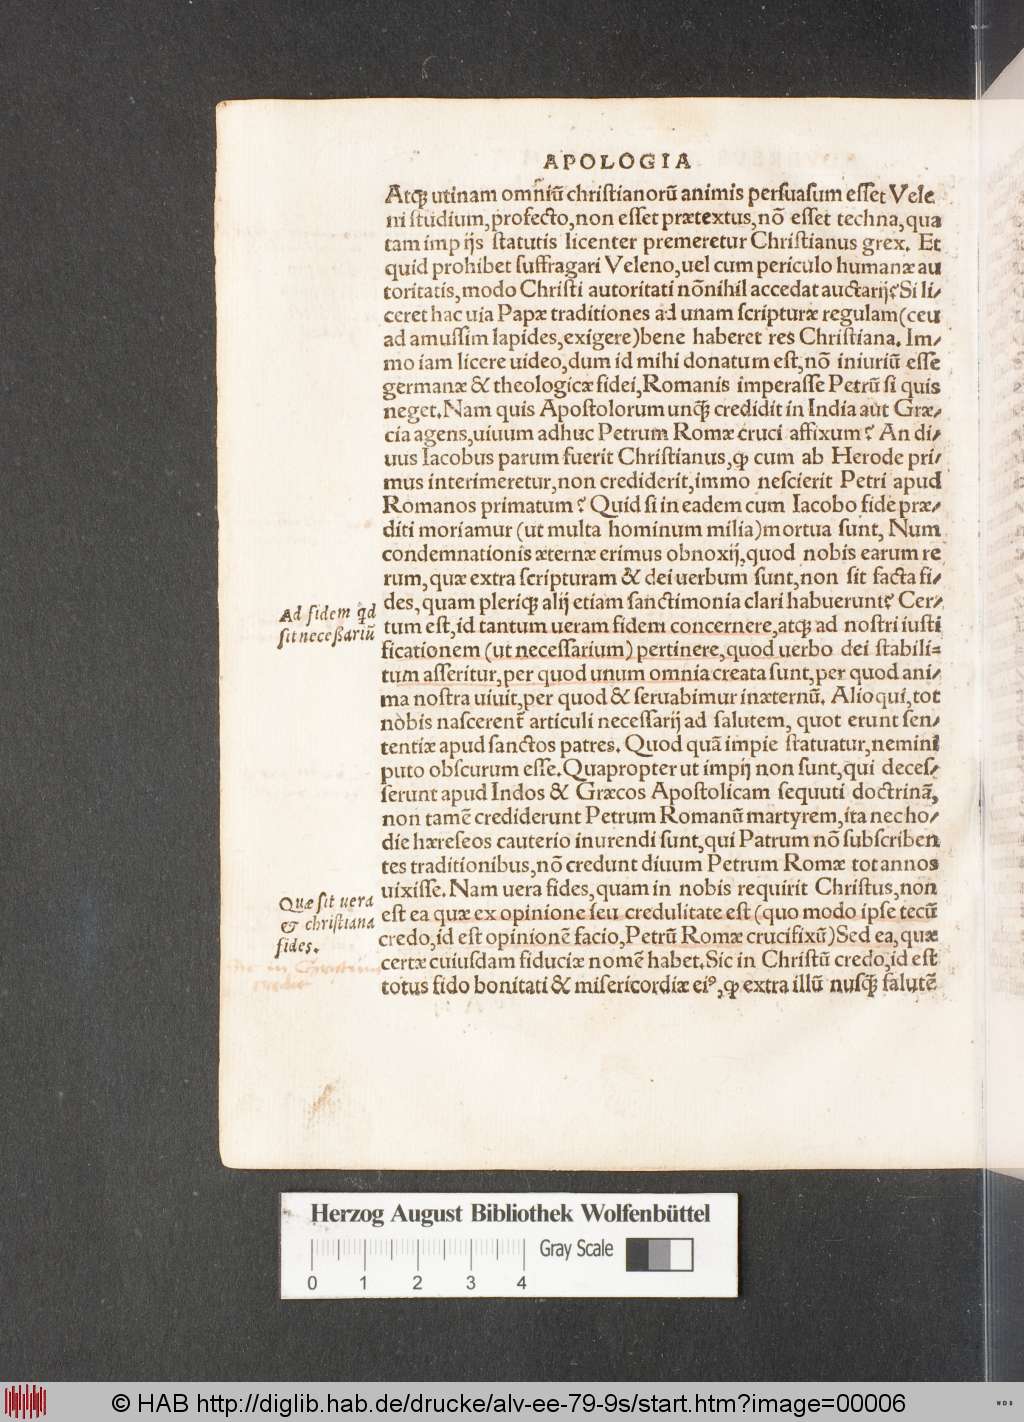 APOLOGIA
Atqꝫ utinam omniũ christianorũ animis persuasum esset Vele
ni studium, profecto, non esset prætextus, nõ esset techna, qua
tam impijs statutis licenter premeretur Christianus grex. Et
quid prohibet suffragari Veleno, uel cum periculo humanæ au
toritatis, modo Christi autoritati nõnihil accedat auctarij? Si li/
ceret hac uia Papæ traditiones ad unam scripturæ regulam (ceu
ad amussim lapides, exigere) bene haberet res Christiana. Im/
mo iam licere uideo, dum id mihi donatum est, nõ iniuriũ esse
germanæ & theologicæ fidei, Romanis imperasse Petrũ si quis
neget. Nam quis Apostolorum unq̃ꝫ credidit in India aut Græ/
cia agens, uiuum adhuc Petrum Romæ cruci affixum? An di/
uus Iacobus parum fuerit Christianus, ꝙ cum ab Herode pri/
mus interimeretur, non crediderit, immo nescierit Petri apud
Romanos primatum? Quid si in eadem cum Iacobo fide præ/
diti moriamur (ut multa hominum milia) mortua sunt, Num
condemnationis æternæ erimus obnoxij, quod nobis earum re
rum, quæ extra scripturam & dei uerbum sunt, non sit facta fi/
des, quam pleriqꝫ alij etiam sanctimonia clari habuerunt? Cer/
Ad fidem qd
tum est, id tantum ueram fidem concernere, atqꝫ ad nostri iusti
sit necessariũ
ficationem (ut necessarium) pertinere, quod uerbo dei stabili=
tum asseritur, per quod unum omnia creata sunt, per quod ani/
ma nostra uiuit, per quod & seruabimur inæternũ. Alioqui, tot
nòbis nascerent̃ articuli necessarij ad salutem, quot erunt sen/
tentiæ apud sanctos patres. Quod quã impie statuatur, nemini
puto obscurum esse. Quapropter ut impij non sunt, qui deces/
serunt apud Indos & Græcos Apostolicam sequuti doctrinã,
non tamẽ crediderunt Petrum Romanũ martyrem, ita nec ho/
die hæreseos cauterio inurendi sunt, qui Patrum nõ subscriben
tes traditionibus, nõ credunt diuum Petrum Romæ tot annos
uixisse. Nam uera fides, quam in nobis requirit Christus, non
Quæ sit uera
& christiana
fides.
est ea quæ ex opinione seu credulitate est (quo modo ipse tecũ
credo, id est opinionẽ facio, Petrũ Romæ crucifixũ) Sed ea, quæ
certæ cuiusdam fiduciæ nomẽ habet. Sic in Christũ credo, id est
totus fido bonitati & misericordiæ eiꝰ, ꝙ extra illũ nusq̃ꝫ salutẽ
Herzog August Bibliothek Wolfenbüttel
Gray Scale
0 1 2 3 4
© HAB http://diglib.hab.de/drucke/alv-ee-79-9s/start.htm?image=00006